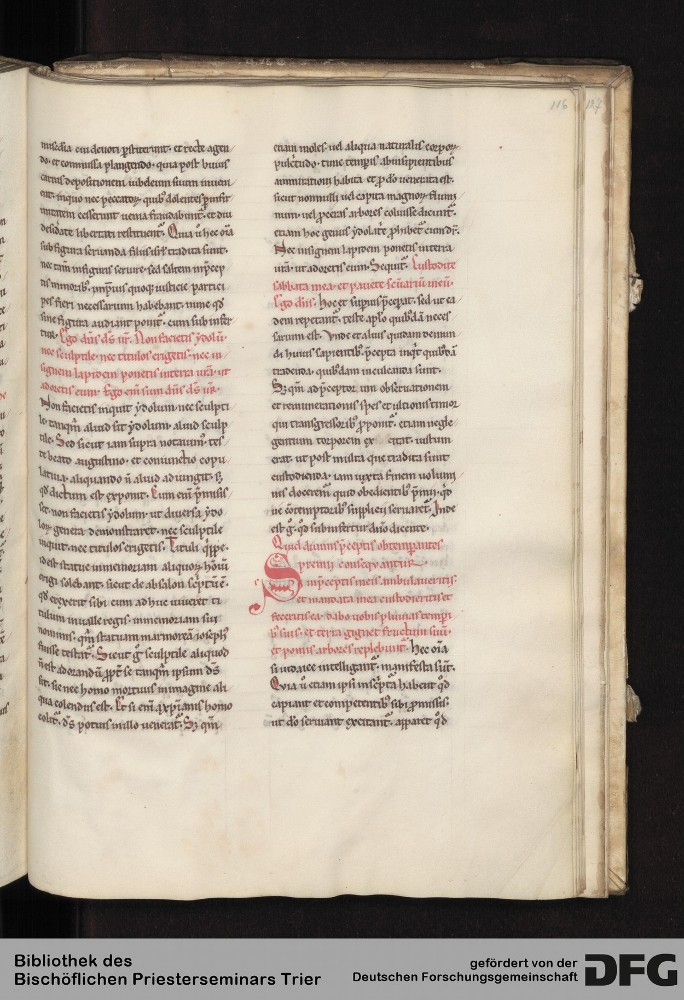 116 127
misc̄dia eiu deuoti ꝑstiterint · et recte agen
do · et commissa plangendo · quia post huius
carnis depositionem iubileum suum inueni
ent · in quo nec peccator
mittatem cesserunt uenia fraudabunt᷑ · et diu
desid̾ate libertati restituent᷑ · Quia ū hec oīa
sub figura seruanda filiis isrl̄ tradita sunt ·
nec tm̄ in figuris seruire · sed saltem in p̄cep
tis minorib᷒ · in quoq; iusticie partici
pes fieri necessarium habebant · nunc qd̓
sine figura audiant ponit᷑ · cum sub infer
tur · Ego dn̄s ds̄ ur̄ · Non facietis ydolū ·
nec sculptile · nec titulos erigetis · nec in
signem lapidem ponetis in terra ur̄a · ut
adoretis eum · Ego em̄ sum dn̄s ds̄ ur̄ ·
Non facietis inquit ydolum nec sculpti
le · tanqm̄ aliud sit ydolum · aliud sculp
tile · Sed sicut iam supra notauim᷒ · tes
te beato augustino · et coniunctio copu
latiua · aliquando n̄ aliud adiungit · sꝫ
qd̓ dictum est exponit · Cum em̄ p̄misis
set · non facietis ydolum · ut diuersa ydo
loꝝ genera demonstraret · nec sculptile
inquit · nec titulos erigetis · Tituli q̄ppe ·
id est statue in memoriam aliquoꝝ hoīm
erigi solebant · sicut de absalon sc̄ptū ē ·
qd̓ erexerit sibi cum adhuc uiueret ti
tulum in ualle regis · in memoriam sui
nominis · qm̄ statuam marmoream ioseph᷒
fuisse testat᷑ · Sicut g̓ sculptile aliquod
n̄ est adorandū ꝓpt̾ se tanqm̄ ipsum ds̄
sit · sic nec homo mortuus in imagine ali
qua colendus est · Et si em̄ a xp̄ianis homo
colit᷑ · ds̄ potius in illo uenerat᷑ · Sꝫ qm̄
etiam moles · uel aliqua naturalis corpoꝝ
pulcritudo · tunc temp̄is ab insipientibus
ammirationi habita · et ꝓ dō uenerata est ·
sicut nonnulli uel capita magnoꝝ flumi
num · uel ꝓceras arbores coluisse dicunt᷑ ·
etiam hoc genus ydolat̾e ꝓhibet᷑ cum dr̄ ·
Nec insignem lapidem ponetis in terra
ur̄a · ut adoretis eum · Sequit᷑ · Custodite
sabbata mea · et pauete sc̄uariū meū ·
Ego dn̄s · Hoc et supius p̄cepat · sed ut ea
dem repetant᷑ · teste aplo̅ quibd̓ā neces
sarium est · Unde et alius quidam de mun
di huius sapientib᷒ · p̄cepta inq̓t quibd̓ā
tradenda · quibd̓am inculcanda sunt ·
Sꝫ qm̄ ad p̄ceptor um obseruationem
et remunerationis spes et ultionis timor
qui transgressorib᷒ ꝓponit᷑ · etiam negle
gentium torporem ex citat · iustum
erat · ut post multa que tradita sunt
custodienda · iam iuxta finem uolumi
nis doceremʳ quid obedientib᷒ p̄mii · q̓d
ue cōtemptorib᷒ supplicii seruaret᷑ · Inde
est g̓ · qd̓ subinfertur dn̄o dicente ·
Quid diuinis p̄ceptis obtemꝑantes
premii consequantur ·
Si in p̄ceptis meis ambulaueritis ·
et mandata mea custodieritis et
feceritis ea · dabo uobis pluuias tempori
b᷒ suis · et terra gignet fructum suū ·
et pomis arbores replebunt᷑ · Hec oīa
si iudaice intelligant᷑ · manifesta sūt ·
Quia ū etiam ipsi in sc̄pta habent qd̓
capiant et competentib᷒ sibi ꝓmissis ·
ut dō seruiant excitant᷑ · apparet qd̓
Bibliothek des
Bischöflichen Priesterseminars Trier
gefördert von der
Deutschen Forschungsgemeinschaft
DFG